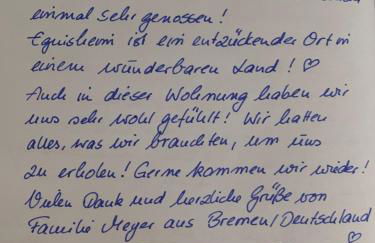 einmal sehr genossen!
Eguisheim ist ein entzückender Ort in
einem wunderbaren Land! ♡
Auch in dieser Wohnung haben wir
uns sehr wohl gefühlt! Wir hatten
alles, was wir brauchten, um uns
zu erholen! Gerne kommen wir wieder!
Vielen Dank und herzliche Grüße von
Familie Meyer aus Bremen/Deutschland
♡